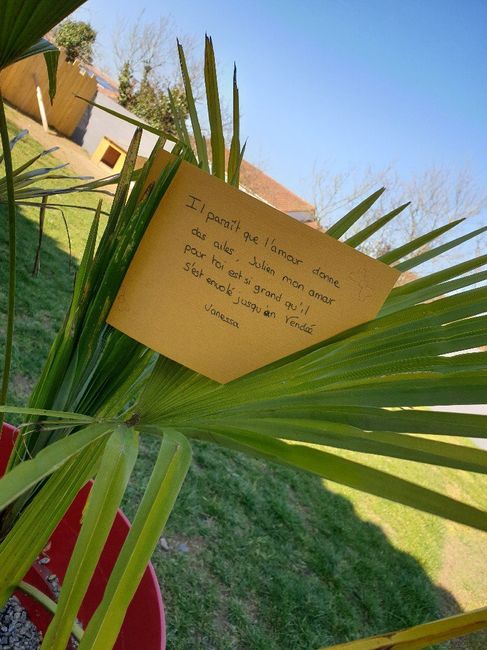 Il paraît que l'amour donne
des ailes, Julien mon amour
pour toi est si grand qu'il
s'est envolé jusqu'en Vendée
Vanessa